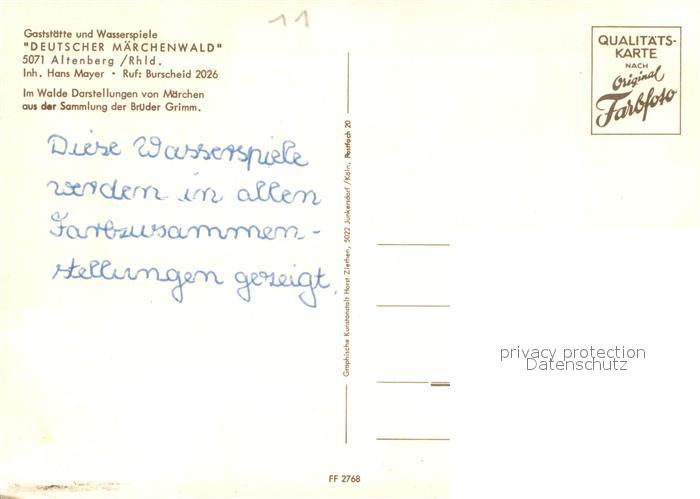 11
Gaststätte und Wasserspiele
"DEUTSCHER MÄRCHENWALD"
5071 Altenberg /Rhld.
Inh. Hans Mayer • Ruf: Burscheid 2026
Im Walde Darstellungen von Märchen
aus der Sammlung der Brüder Grimm.
Diese Wasserspiele
werden in allen
Farbzusammen-
stellungen gezeigt.
Graphische Kunstanstalt Horst Ziethen, 5022 Junkersdorf/Köln, Postfach 20
QUALITÄTS-
KARTE
NACH
Original
Farbfoto
privacy protection
Datenschutz
FF 2768